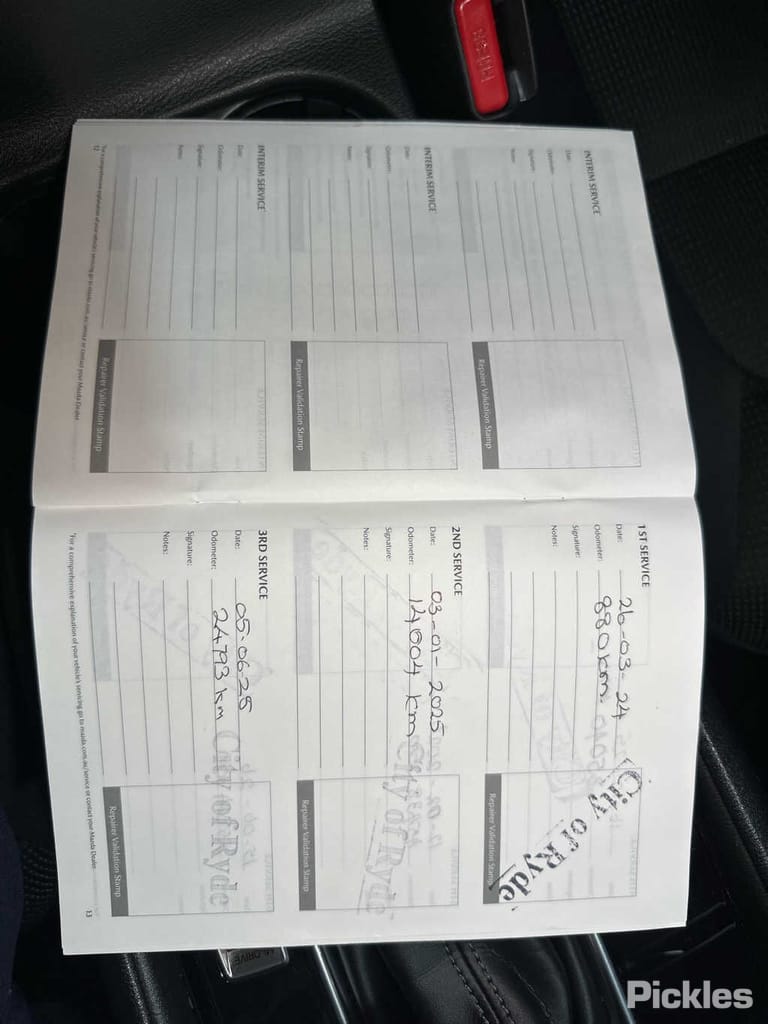 INTERIM SERVICE
Date:
Odometer:
Signature:
Notes:
Repairer Validation Stamp
INTERIM SERVICE
Date:
Odometer:
Signature:
Notes:
Repairer Validation Stamp
INTERIM SERVICE
Date:
Odometer:
Signature:
Notes:
Repairer Validation Stamp
12
1ST SERVICE
Date: 26-03-24
Odometer: 880km
Signature:
Notes:
Repairer Validation Stamp
City of Ryde
2ND SERVICE
Date: 03-01-2025
Odometer: 14004 km
Signature:
Notes:
Repairer Validation Stamp
City of Ryde
3RD SERVICE
Date: 05.06.25
Odometer: 24793 km
Signature:
Notes:
Repairer Validation Stamp
City of Ryde
*For a comprehensive explanation of your vehicle's servicing go to mazda.com.au/service or contact your Mazda Dealer.
13
Pickles